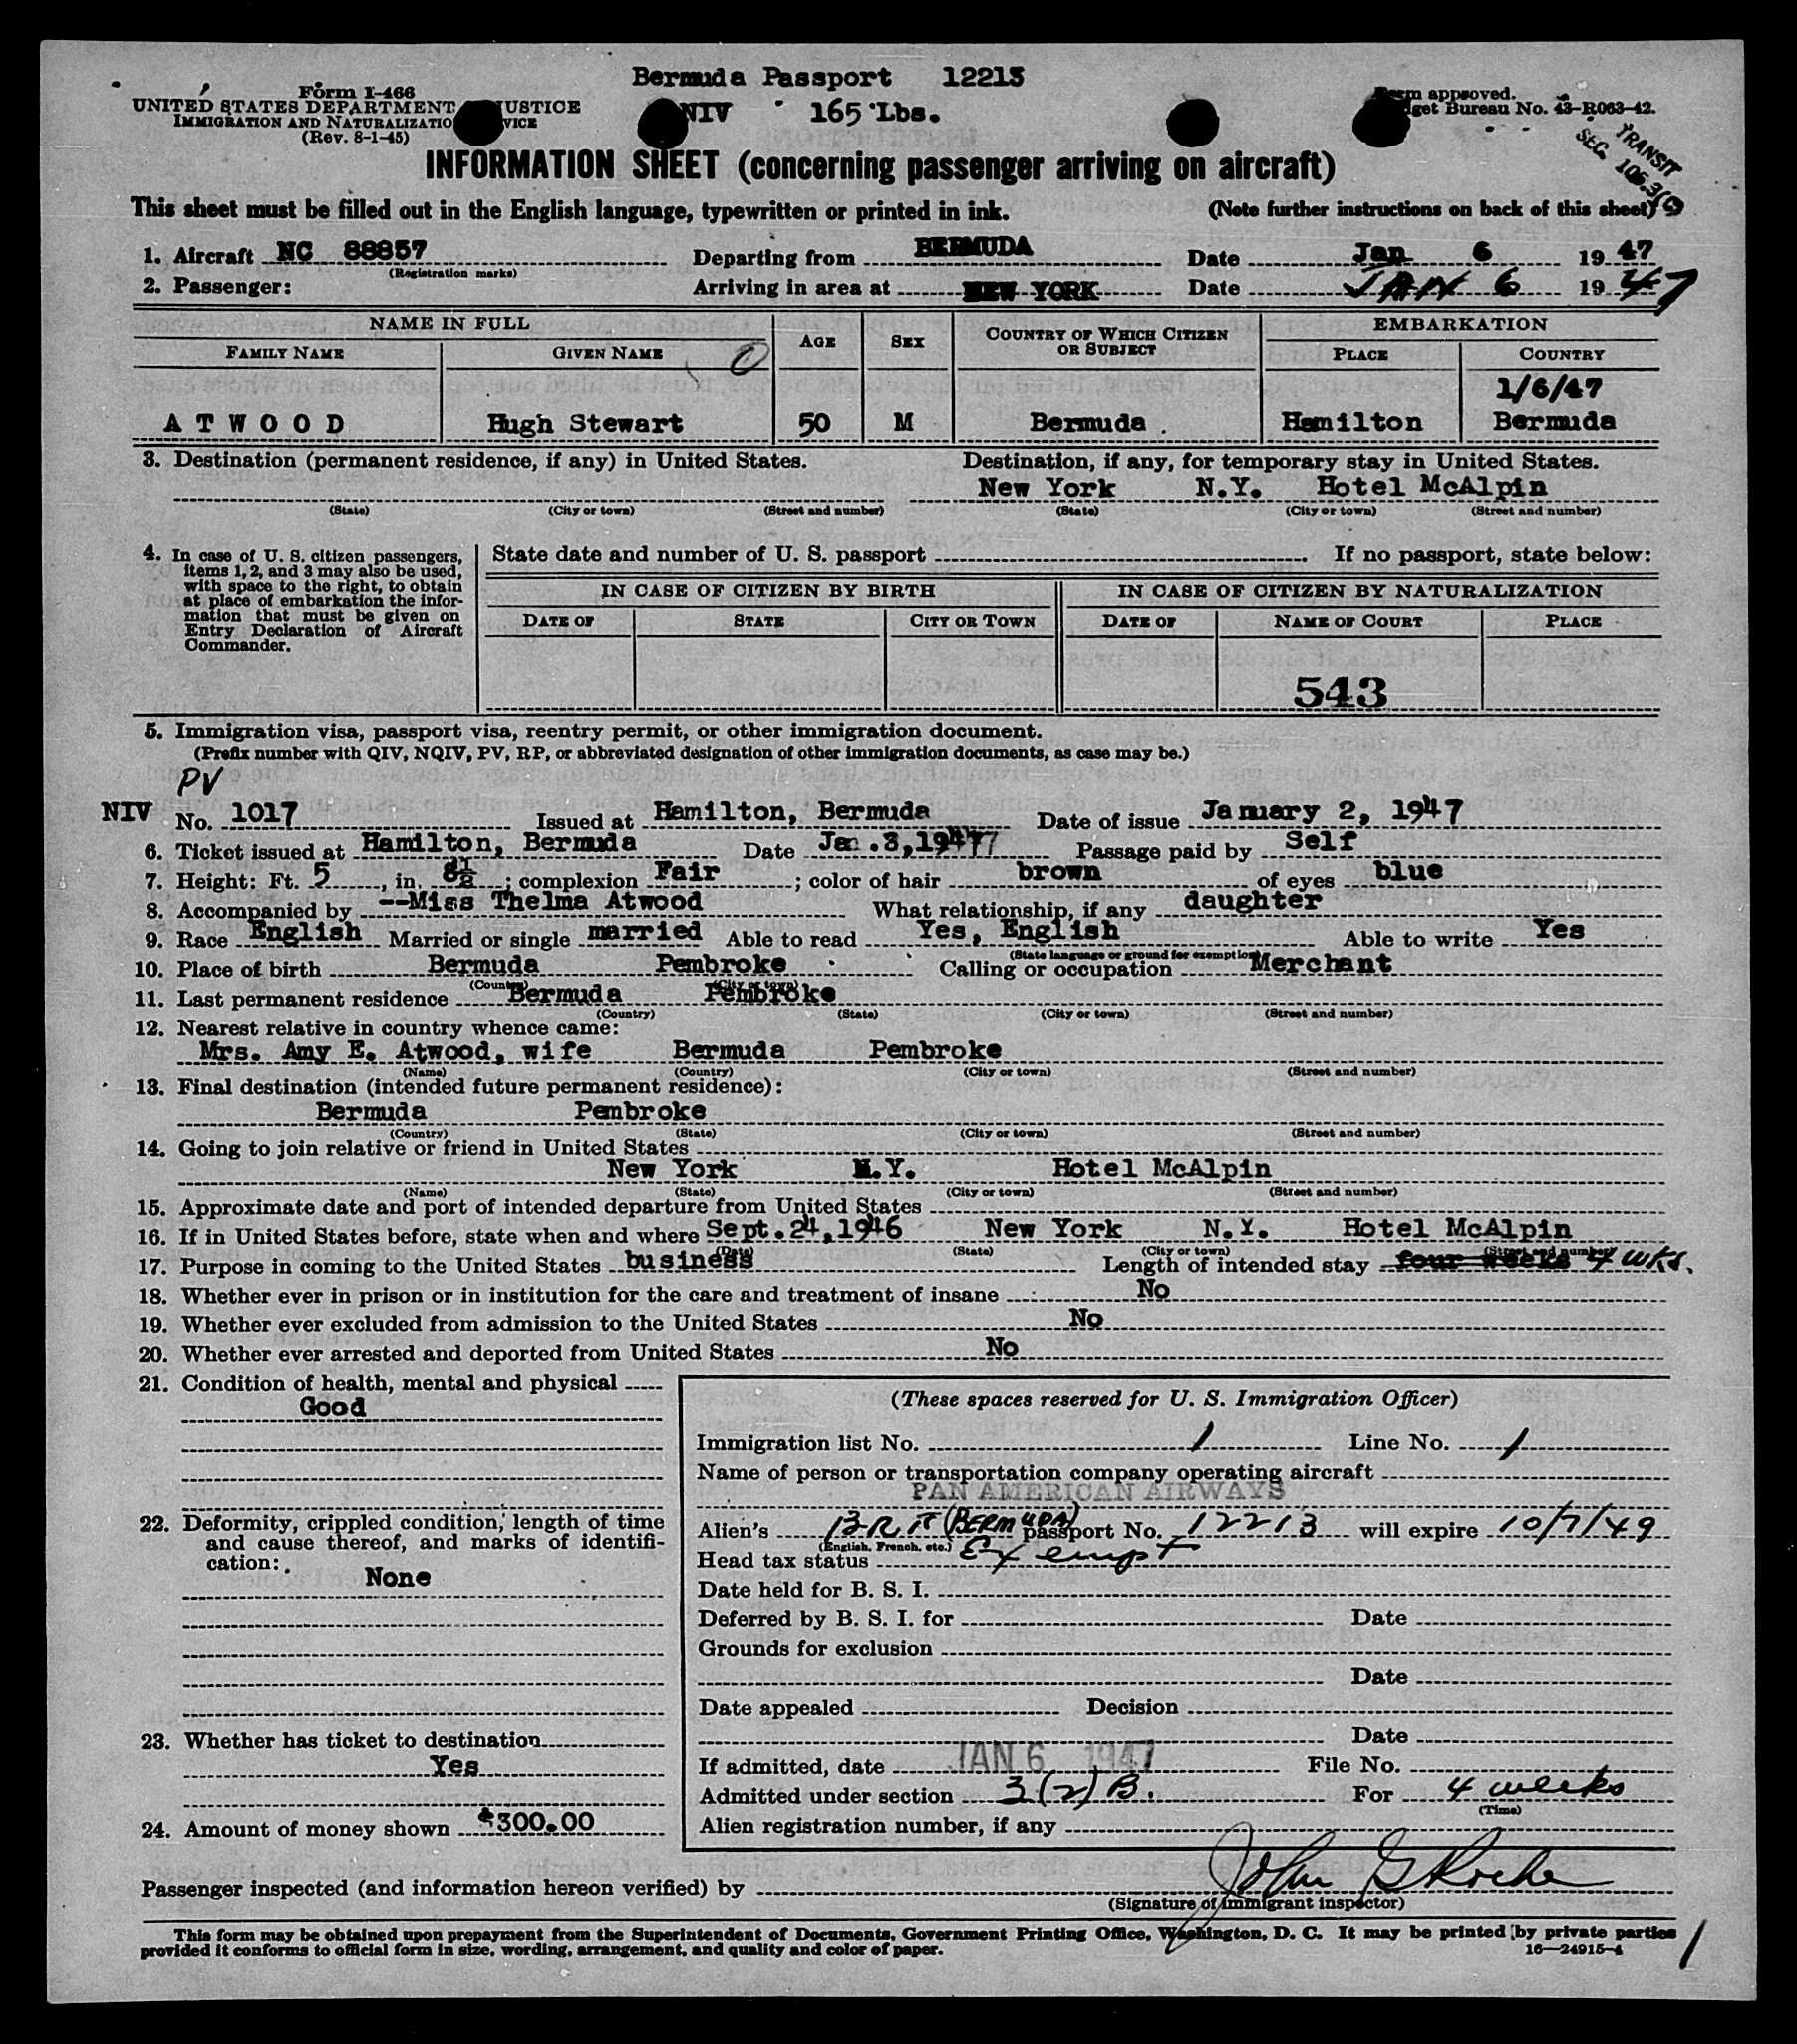 Bermuda Passport 12213
Form I-466
UNITED STATES DEPARTMENT USTICE
NIV 165 Lbs.
Form approved.
get Bureau No. 43-R063-42.
IMMIGRATION AND NATURALIZATIO VICE
(Rev. 8-1-45)
TRANSIT
SEC.
INFORMATION SHEET (concerning passenger arriving on aircraft)
This sheet must be filled out in the English language, typewritten or printed in ink. (Note further instructions on back of this sheet)
1. Aircraft NC 88857 Departing from BERMUDA Date Jan 6 1947
(Registration marks)
2. Passenger: Arriving in area at NEW YORK Date JAN 6 1947
NAME IN FULL AGE SEX COUNTRY OF WHICH CITIZEN OR SUBJECT EMBARKATION
FAMILY NAME GIVEN NAME PLACE COUNTRY
1/6/47
ATWOOD Hugh Stewart 50 M Bermuda . Hamilton Bermuda
3. Destination (permanent residence, if any) in United States. Destination, if any, for temporary stay in United States.
New York N.Y. Hotel McAlpin
(State) (City or town) (Street and number) (State) (City or town) (Street and number)
4. In case of U. S. citizen passengers, items 1, 2, and 3 may also be used, with space to the right, to obtain at place of embarkation the information that must be given on Entry Declaration of Aircraft Commander.
State date and number of U. S. passport . If no passport, state below:
IN CASE OF CITIZEN BY BIRTH IN CASE OF CITIZEN BY NATURALIZATION
DATE OF STATE CITY OR TOWN DATE OF NAME OF COURT PLACE
543
5. Immigration visa, passport visa, reentry permit, or other immigration document.
(Prefix number with QIV, NQIV, PV, RP, or abbreviated designation of other immigration documents, as case may be.)
PV
NIV No. 1017 Issued at Hamilton, Bermuda Date of issue January 2, 1947
6. Ticket issued at Hamilton, Bermuda Date Jan.3,1947 Passage paid by Self
7. Height: Ft. 5, in. 8½; complexion Fair; color of hair brown of eyes blue
8. Accompanied by --Miss Thelma Atwood What relationship, if any daughter
9. Race English Married or single married Able to read Yes, English Able to write Yes
(State language or ground for exemption)
10. Place of birth Bermuda Pembroke Calling or occupation Merchant
(Country) (City or town)
11. Last permanent residence Bermuda Pembroke
(Country) (State) (City or town) (Street and number)
12. Nearest relative in country whence came:
Mrs. Amy E. Atwood, wife Bermuda Pembroke
(Name) (Country) (City or town) (Street and number)
13. Final destination (intended future permanent residence):
Bermuda Pembroke
(Country) (State) (City or town) (Street and number)
14. Going to join relative or friend in United States
New York N.Y. Hotel McAlpin
(Name) (State) (City or town) (Street and number)
15. Approximate date and port of intended departure from United States
16. If in United States before, state when and where Sept.24,1946 New York N.Y. Hotel McAlpin
(Date) (State) (City or town) (Street and number)
17. Purpose in coming to the United States business Length of intended stay four weeks 4 wks.
18. Whether ever in prison or in institution for the care and treatment of insane No
19. Whether ever excluded from admission to the United States No
20. Whether ever arrested and deported from United States No
21. Condition of health, mental and physical
Good
22. Deformity, crippled condition, length of time and cause thereof, and marks of identification:
None
23. Whether has ticket to destination
Yes
24. Amount of money shown $300.00
(These spaces reserved for U. S. Immigration Officer)
Immigration list No. 1 Line No. 1
Name of person or transportation company operating aircraft
PAN AMERICAN AIRWAYS
Alien's BRIT (BERMUDA) passport No. 12213 will expire 10/7/49
(English, French, etc.)
Head tax status Exempt
Date held for B. S. I.
Deferred by B. S. I. for Date
Grounds for exclusion
Date
Date appealed Decision
Date
If admitted, date JAN 6 1947 File No.
Admitted under section 3(2)B. For 4 weeks
(Time)
Alien registration number, if any
Passenger inspected (and information hereon verified) by John G Roche
(Signature of immigrant inspector)
This form may be obtained upon prepayment from the Superintendent of Documents, Government Printing Office, Washington, D. C. It may be printed by private parties
provided it conforms to official form in size, wording, arrangement, and quality and color of paper. 16—24915-4
1